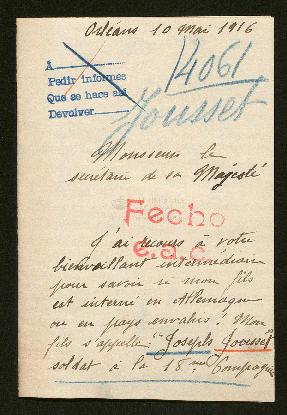 Orléans 10 Mai 1916
A
Pedir informes
Que se hace así
Devolver
14061
Jousset
Monsieur le
secretaire de sa Majesté
Fecho
e.a.c.
J'ai recours à votre
bienveillant intermédiaire
pour savoir si mon fils
est interné en Allemagne
ou en pays envahis. Mon
fils s'appelle "Joseph Jousset"
soldat à la 18me Compagnie